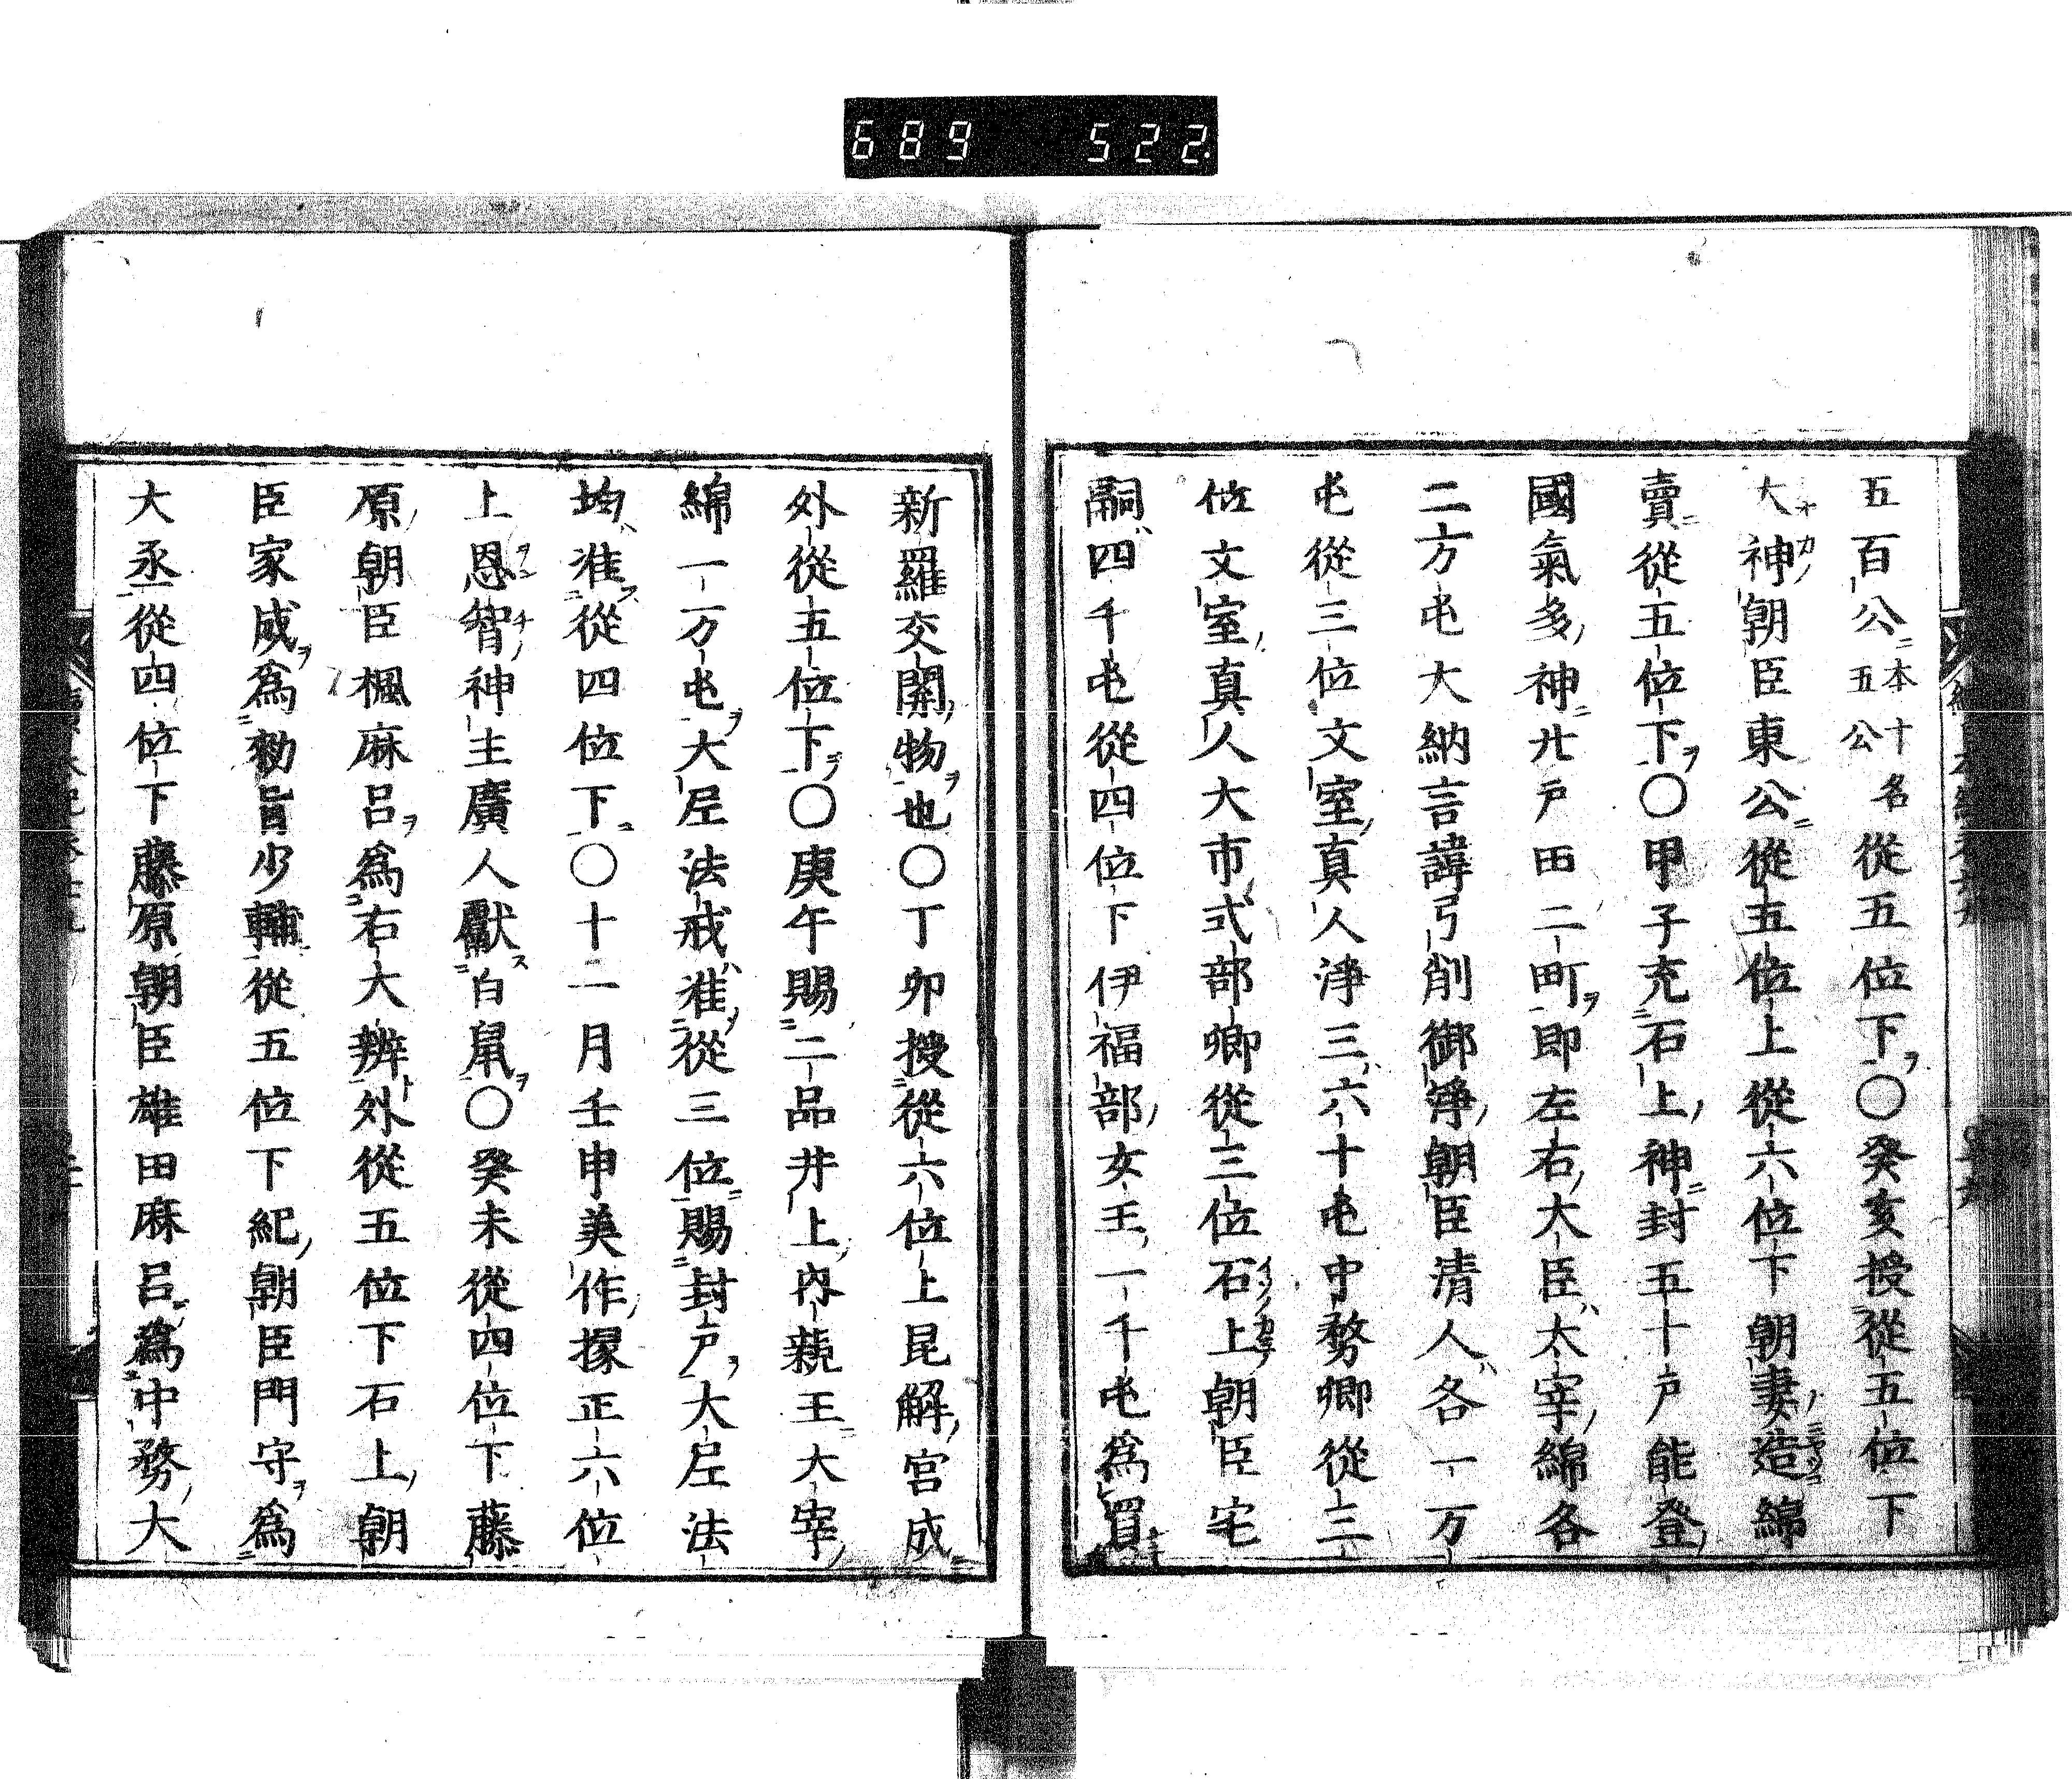 689 522
五百公本十名五公從五位下〇癸亥授從五位下
大神朝臣東公從五位上從六位下朝妻造綿
賣從五位下〇甲子充石上神封五十戸能登
國氣多神廿戸田二町即左右大臣太宰綿各
二万屯大納言諱弓削御淨朝臣清人各一万
屯從三位文室真人淨三六十屯中務卿從三
位文室真人大市式部卿從三位石上朝臣宅
嗣四千屯從四位下伊福部女王一千屯爲買
新羅交關物也〇丁卯授從六位上昆解宮成
外從五位下〇庚午賜二品井上內親王大宰
綿一万屯大尼法戒准從三位賜封戸大尼法
均准從四位下〇十二月壬申美作掾正六位
上恩智神主廣人獻白鼠〇癸未從四位下藤
原朝臣楓麻呂爲右大辨外從五位下石上朝
臣家成爲勅旨少輔從五位下紀朝臣門守爲
大丞從四位下藤原朝臣雄田麻呂爲中務大